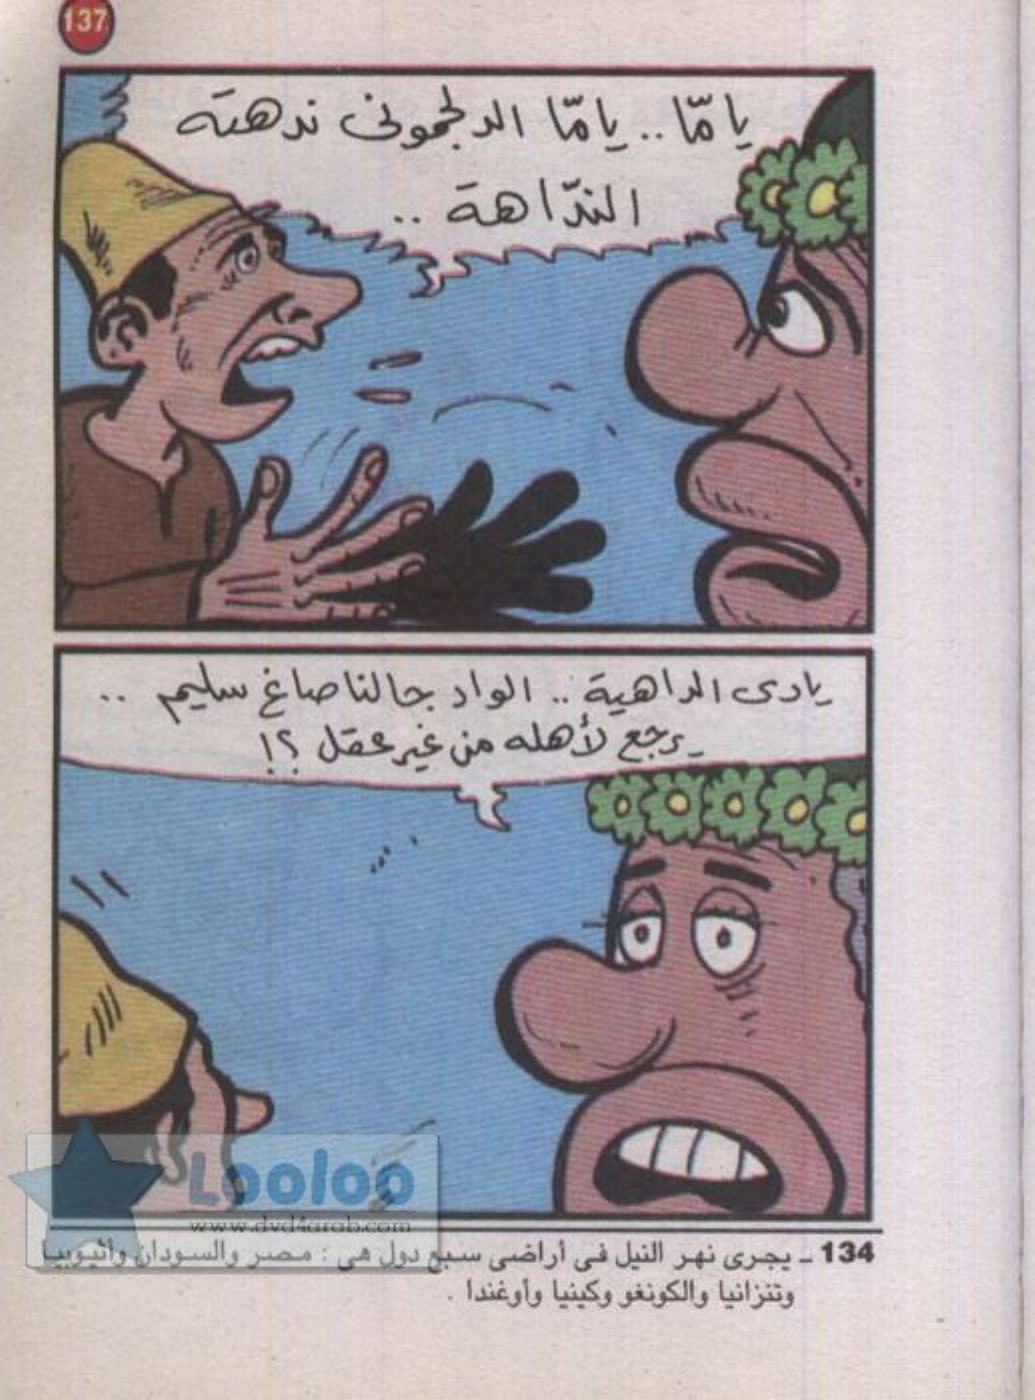 137
يا مّا .. يا مّا الدلجمونى ندهته
الندّاهة ..
يادى الداهية .. الواد جالنا صاغ سليم ..
يرجع لأهله من غير عقل ؟!
Looloo
www.dvd4arab.com
134 ـ يجرى نهر النيل فى أراضى سبع دول هى : مصر والسودان وأثيوبيا
وتنزانيا والكونغو وكينيا وأوغندا .